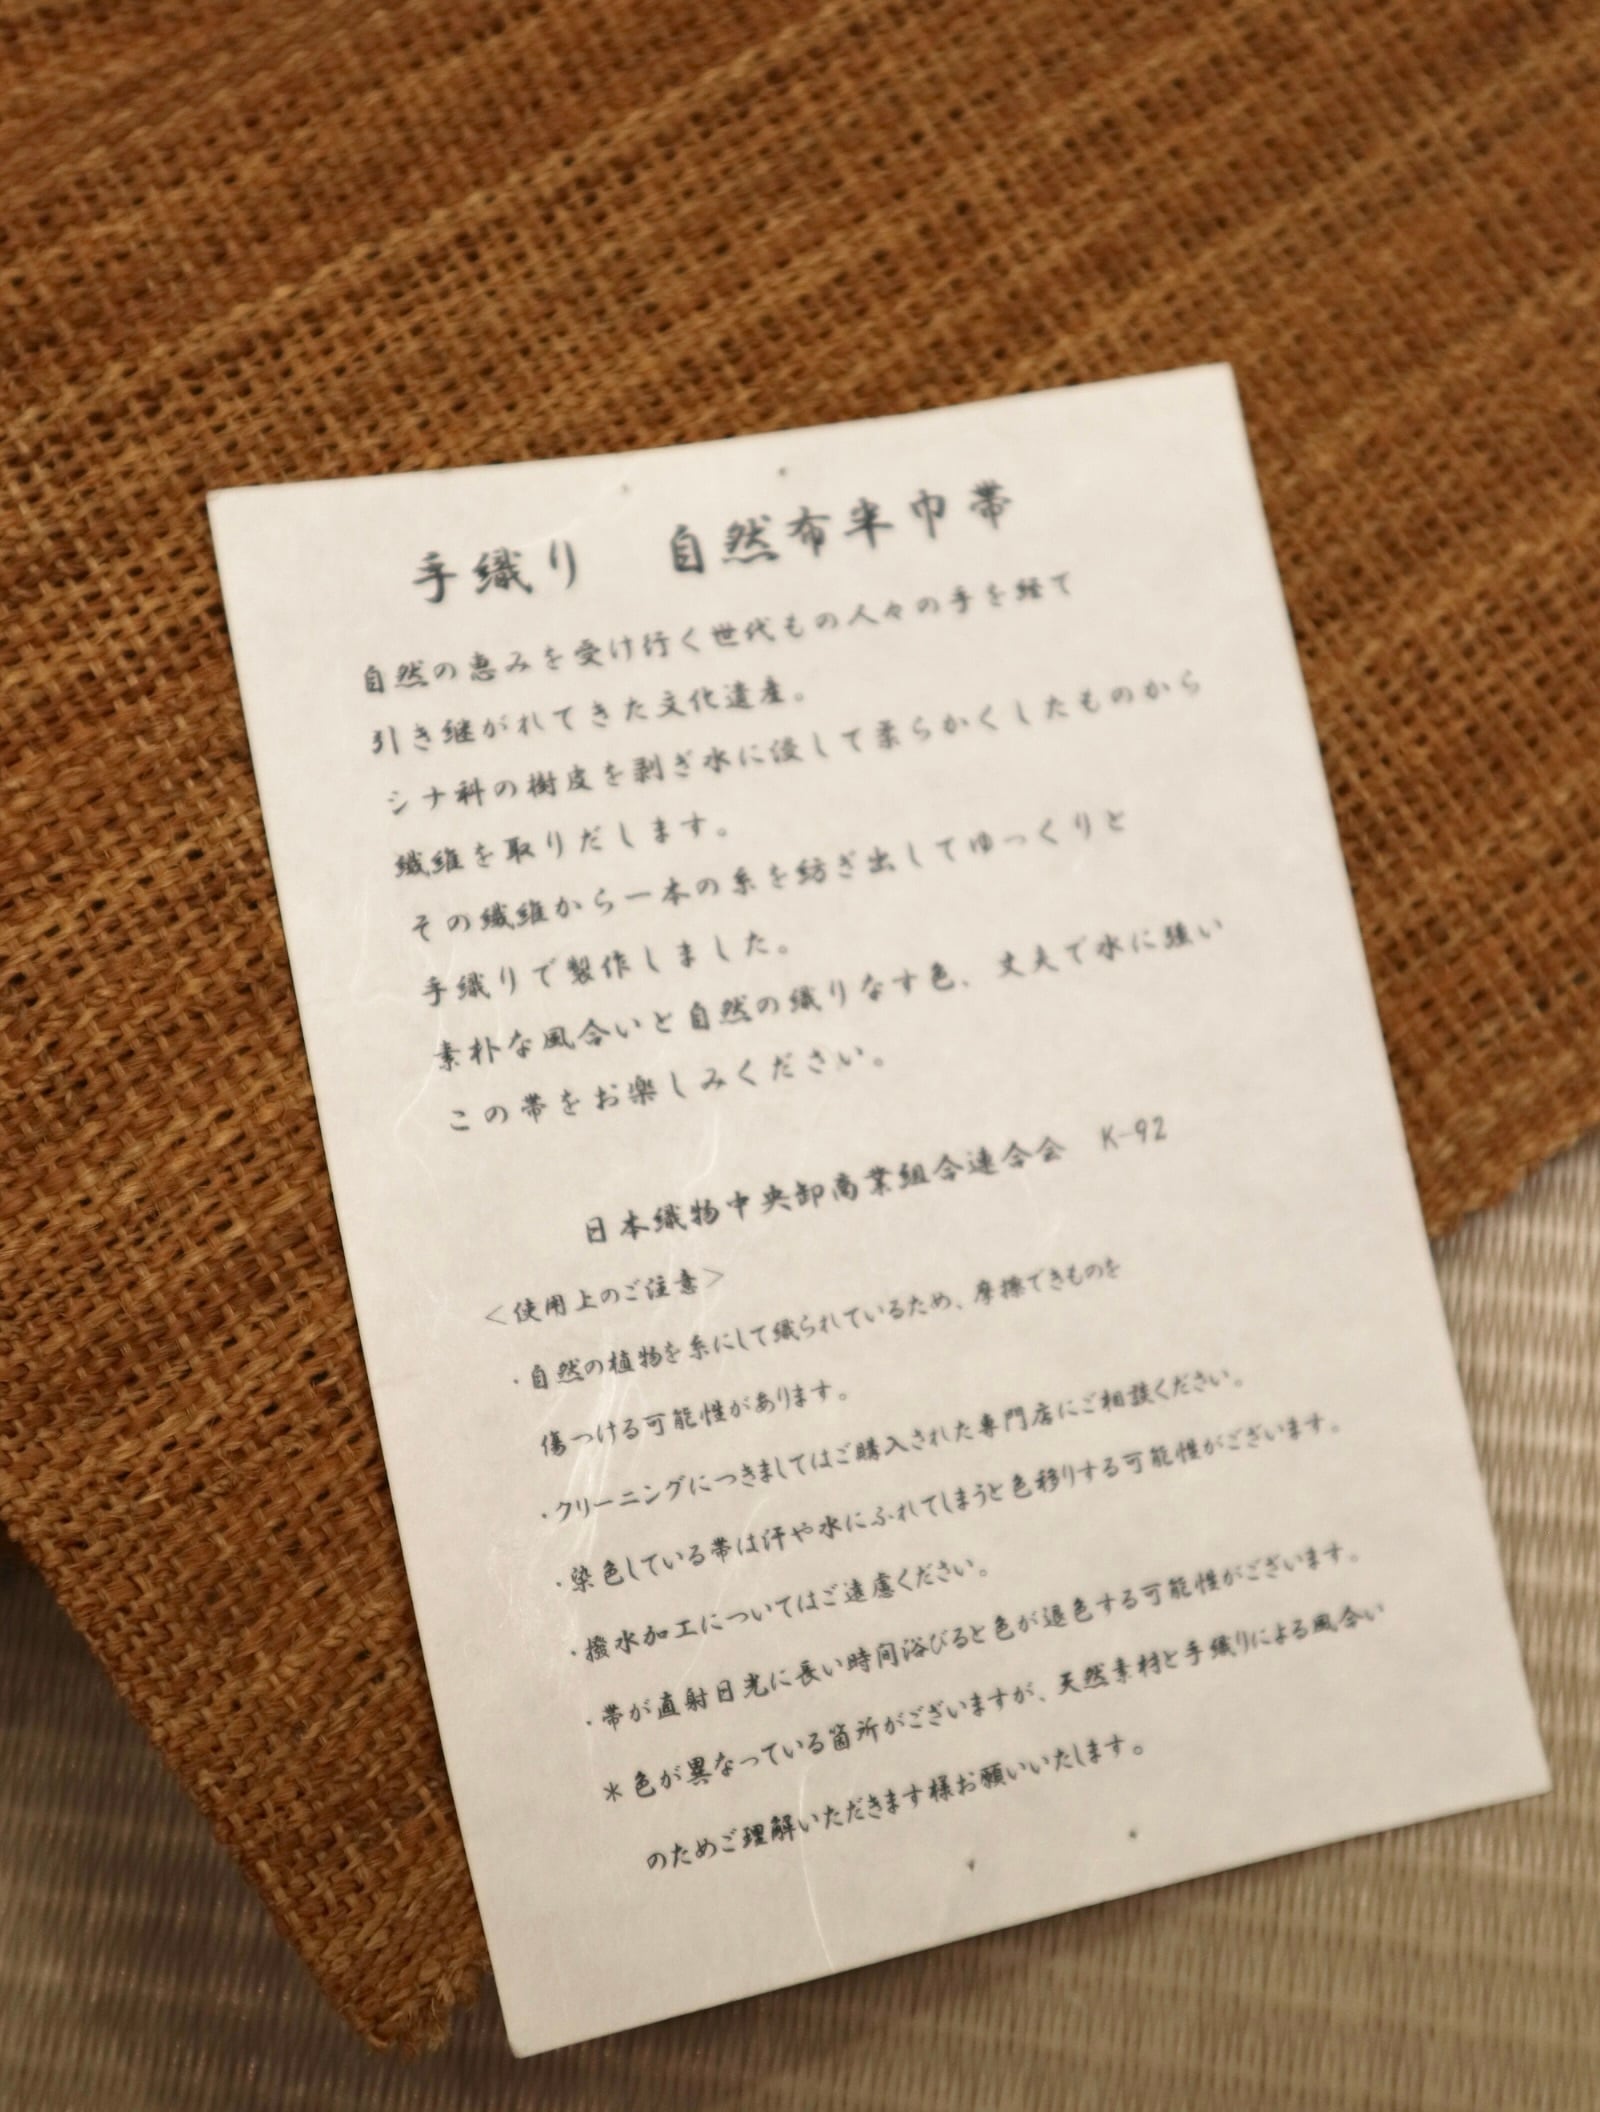 手織り　自然布半巾帯
自然の恵みを受け行く世代もの人々の手を経て
引き継がれてきた文化遺産。
シナ科の樹皮を剥ぎ水に浸して柔らかくしたものから
繊維を取りだします。
その繊維から一本の糸を紡ぎ出してゆっくりと
手織りで製作しました。
素朴な風合いと自然の織りなす色、丈夫で水に強い
この帯をお楽しみください。
日本織物中央卸商業組合連合会　K-92
＜使用上のご注意＞
・自然の植物を糸にして織られているため、摩擦できものを
傷つける可能性があります。
・クリーニングにつきましてはご購入された専門店にご相談ください。
・染色している帯は汗や水にふれてしまうと色移りする可能性がございます。
・撥水加工についてはご遠慮ください。
・帯が直射日光に長い時間浴びると色が退色する可能性がございます。
＊色が異なっている箇所がございますが、天然素材と手織りによる風合い
のためご理解いただきます様お願いいたします。